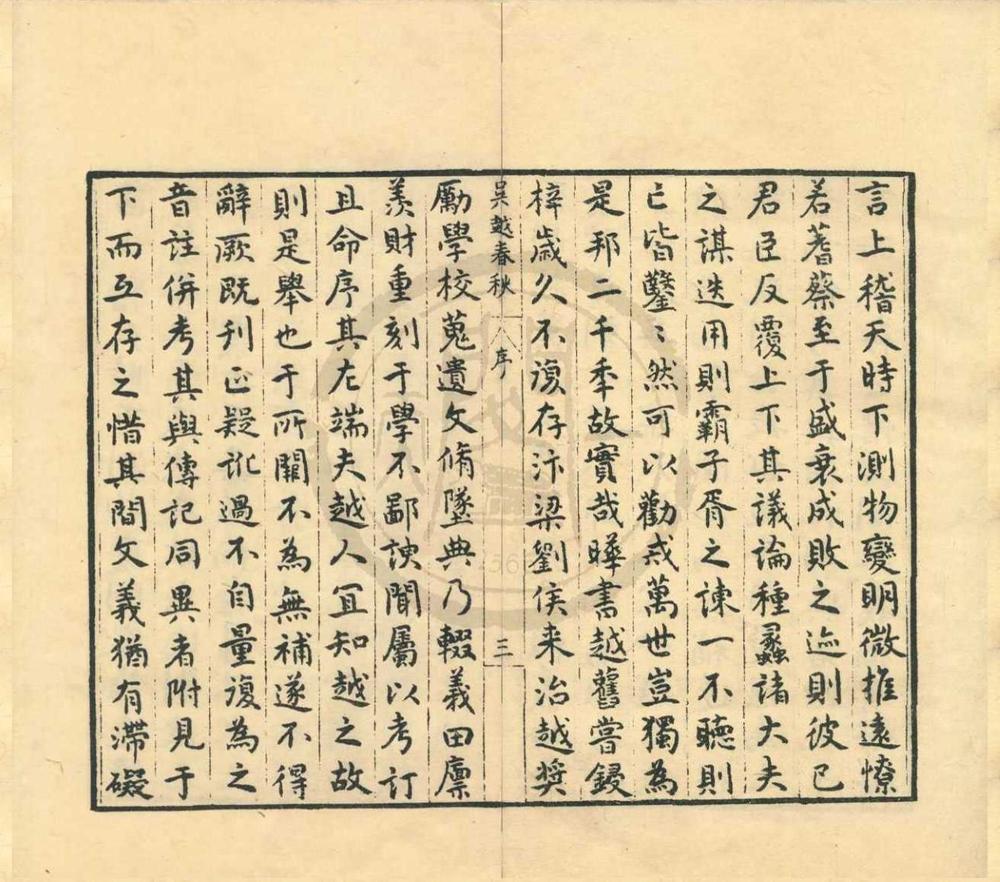 言上稽天時下測物變明微推遠憭
若蓍蔡至于盛衰成敗之迹則彼己
君臣反覆上下其議論種蠡諸大夫
之謀迭用則霸子胥之諫一不聽則
亡皆鑿〻然可以勸戒萬世豈獨為
是邦二千年故實哉曄書越舊嘗鋟
梓歲久不復存汴梁劉侯来治越獎
吳越春秋 序 三
勵學校蒐遺文脩墜典乃輟義田廩
羨財重刻于學不鄙謏聞屬以考訂
且命序其左端夫越人宜知越之故
則是舉也于所關不為無補遂不得
辭厥既刊正疑訛過不自量復為之
音註併考其與傳記同異者附見于
下而互存之惜其間文義猶有滯礙